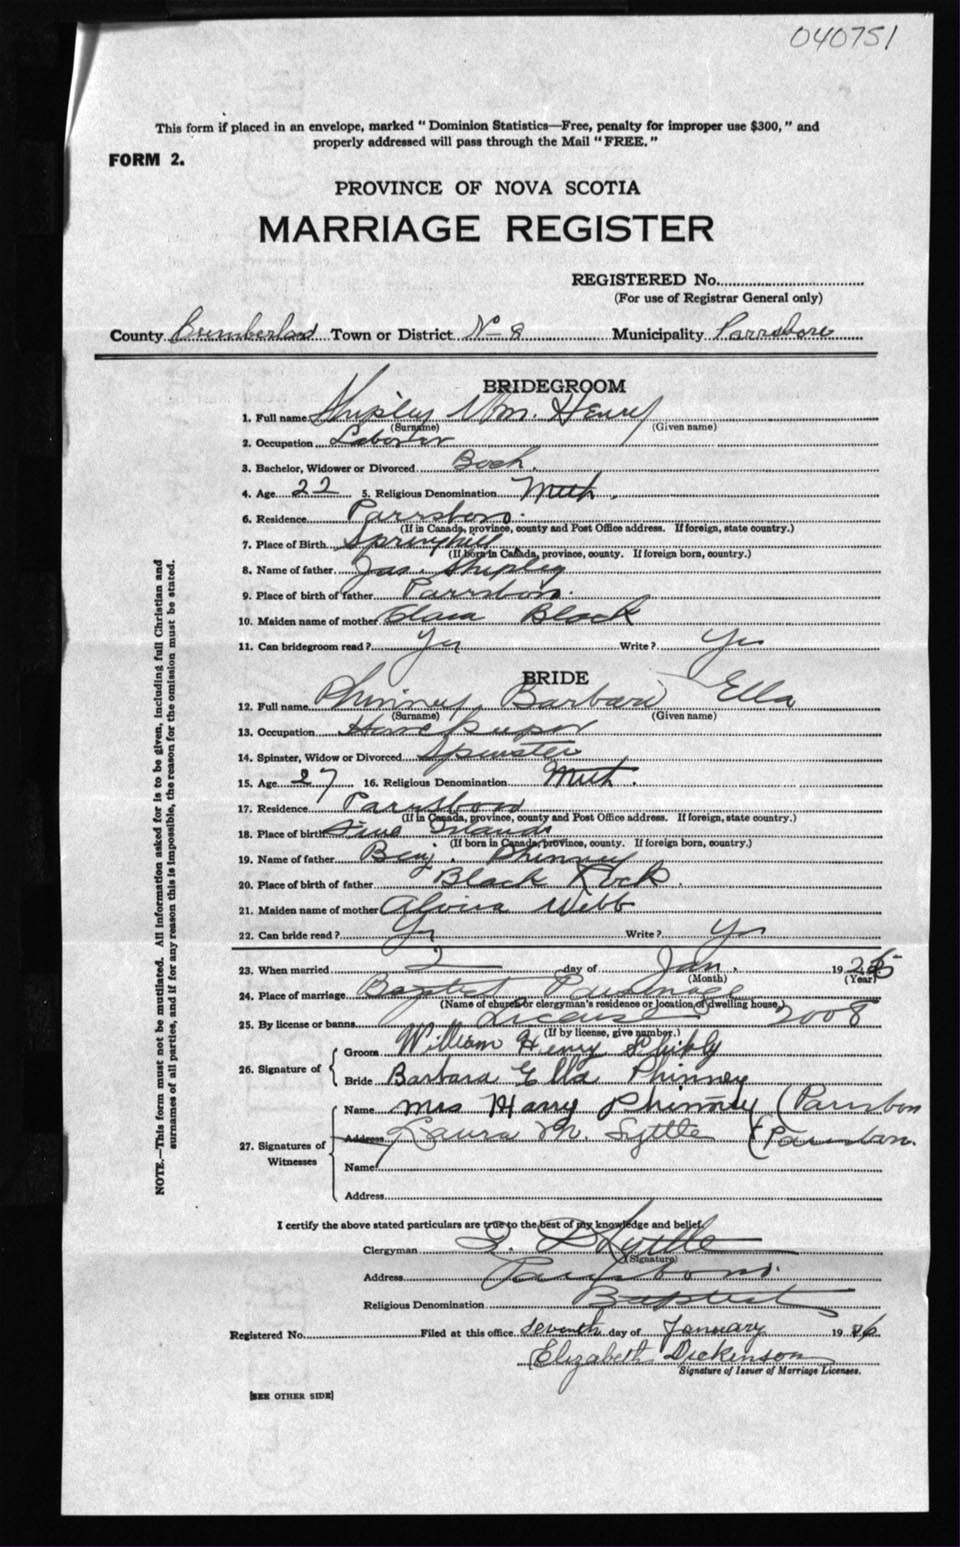 040751
This form if placed in an envelope, marked "Dominion Statistics—Free, penalty for improper use $300," and
properly addressed will pass through the Mail "FREE."
FORM 2.
PROVINCE OF NOVA SCOTIA
MARRIAGE REGISTER
REGISTERED No.
(For use of Registrar General only)
County Cumberland Town or District No 8 Municipality Parrsboro
BRIDEGROOM
1. Full name Shipley Wm. Henry
(Surname) (Given name)
2. Occupation Laborer
3. Bachelor, Widower or Divorced Bach.
4. Age 22 5. Religious Denomination Meth.
6. Residence Parrsboro.
(If in Canada, province, county and Post Office address. If foreign, state country.)
7. Place of Birth Springhill
(If born in Canada, province, county. If foreign born, country.)
8. Name of father Jas. Shipley
9. Place of birth of father Parrsboro.
10. Maiden name of mother Clara Black
11. Can bridegroom read? Yes Write? Yes
BRIDE
12. Full name Phinney Barbara Ella
(Surname) (Given name)
13. Occupation Housekeeper
14. Spinster, Widow or Divorced Spinster
15. Age 27 16. Religious Denomination Meth.
17. Residence Parrsboro
(If in Canada, province, county and Post Office address. If foreign, state country.)
18. Place of birth Five Islands
(If born in Canada, province, county. If foreign born, country.)
19. Name of father Benj. Phinney
20. Place of birth of father Black Rock.
21. Maiden name of mother Alvira Webb
22. Can bride read? Yes Write? Yes
23. When married 2 day of Jan. 19 26
(Month) (Year)
24. Place of marriage Baptist Parsonage
(Name of church or clergyman's residence or location of dwelling house.)
25. By license or banns License 2008
(If by license, give number.)
26. Signature of
Groom William Henry Shiply
Bride Barbara Ella Phinney
27. Signatures of Witnesses
Name Mrs Harry Phinney (Parrsboro
Address Laura M. Lyttle (Parrsboro.
Name
Address
I certify the above stated particulars are true to the best of my knowledge and belief.
Clergyman Lyttle
(Signature)
Address Parrsboro.
Religious Denomination Baptist
Registered No. Filed at this office seventh day of January 19 26
Elizabeth Dickenson
Signature of Issuer of Marriage Licenses.
[SEE OTHER SIDE]
NOTE.—This form must not be mutilated. All information asked for is to be given, including full Christian and
surnames of all parties, and if for any reason this is impossible, the reason for the omission must be stated.